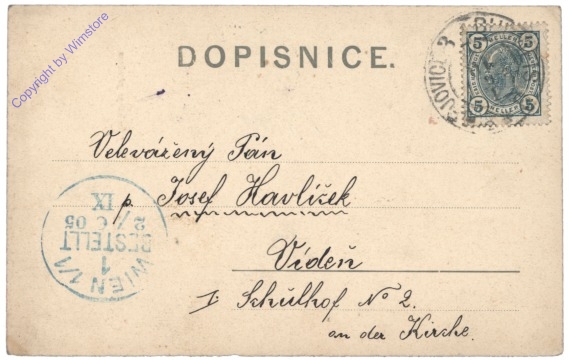 Copyright by Wimstore
DOPISNICE.
5 HELLER 5
5 HELLER 5
Velevážený Pán
p. Josef Havlížek
Vídeň
I. Schulhof No 2.
an der Kirche.
WIEN 1/1
1
BESTELLT
2/6 05
IX